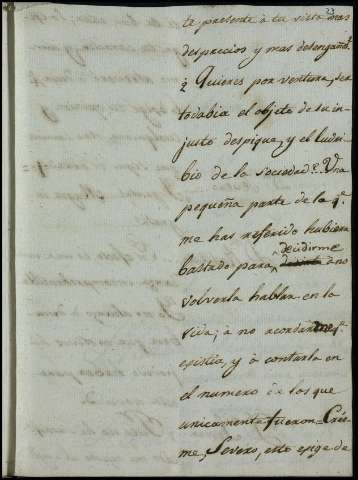 23
te presente à tu vista mas
desprecios y mas desengaños?
¿ Quieres por ventura, ser
todabia el objeto de su in-
justo despique, y el ludi-
bio de la sociedad? Una
pequeña parte de la q.e
me has referido hubiera
decidirme
bastado para á no
volverla hablar en la
vida; à no acordarme q.e
existia, y à contarla en
el numero de los que
unicamente fueron. Crée-
me, Severo, esto exige de